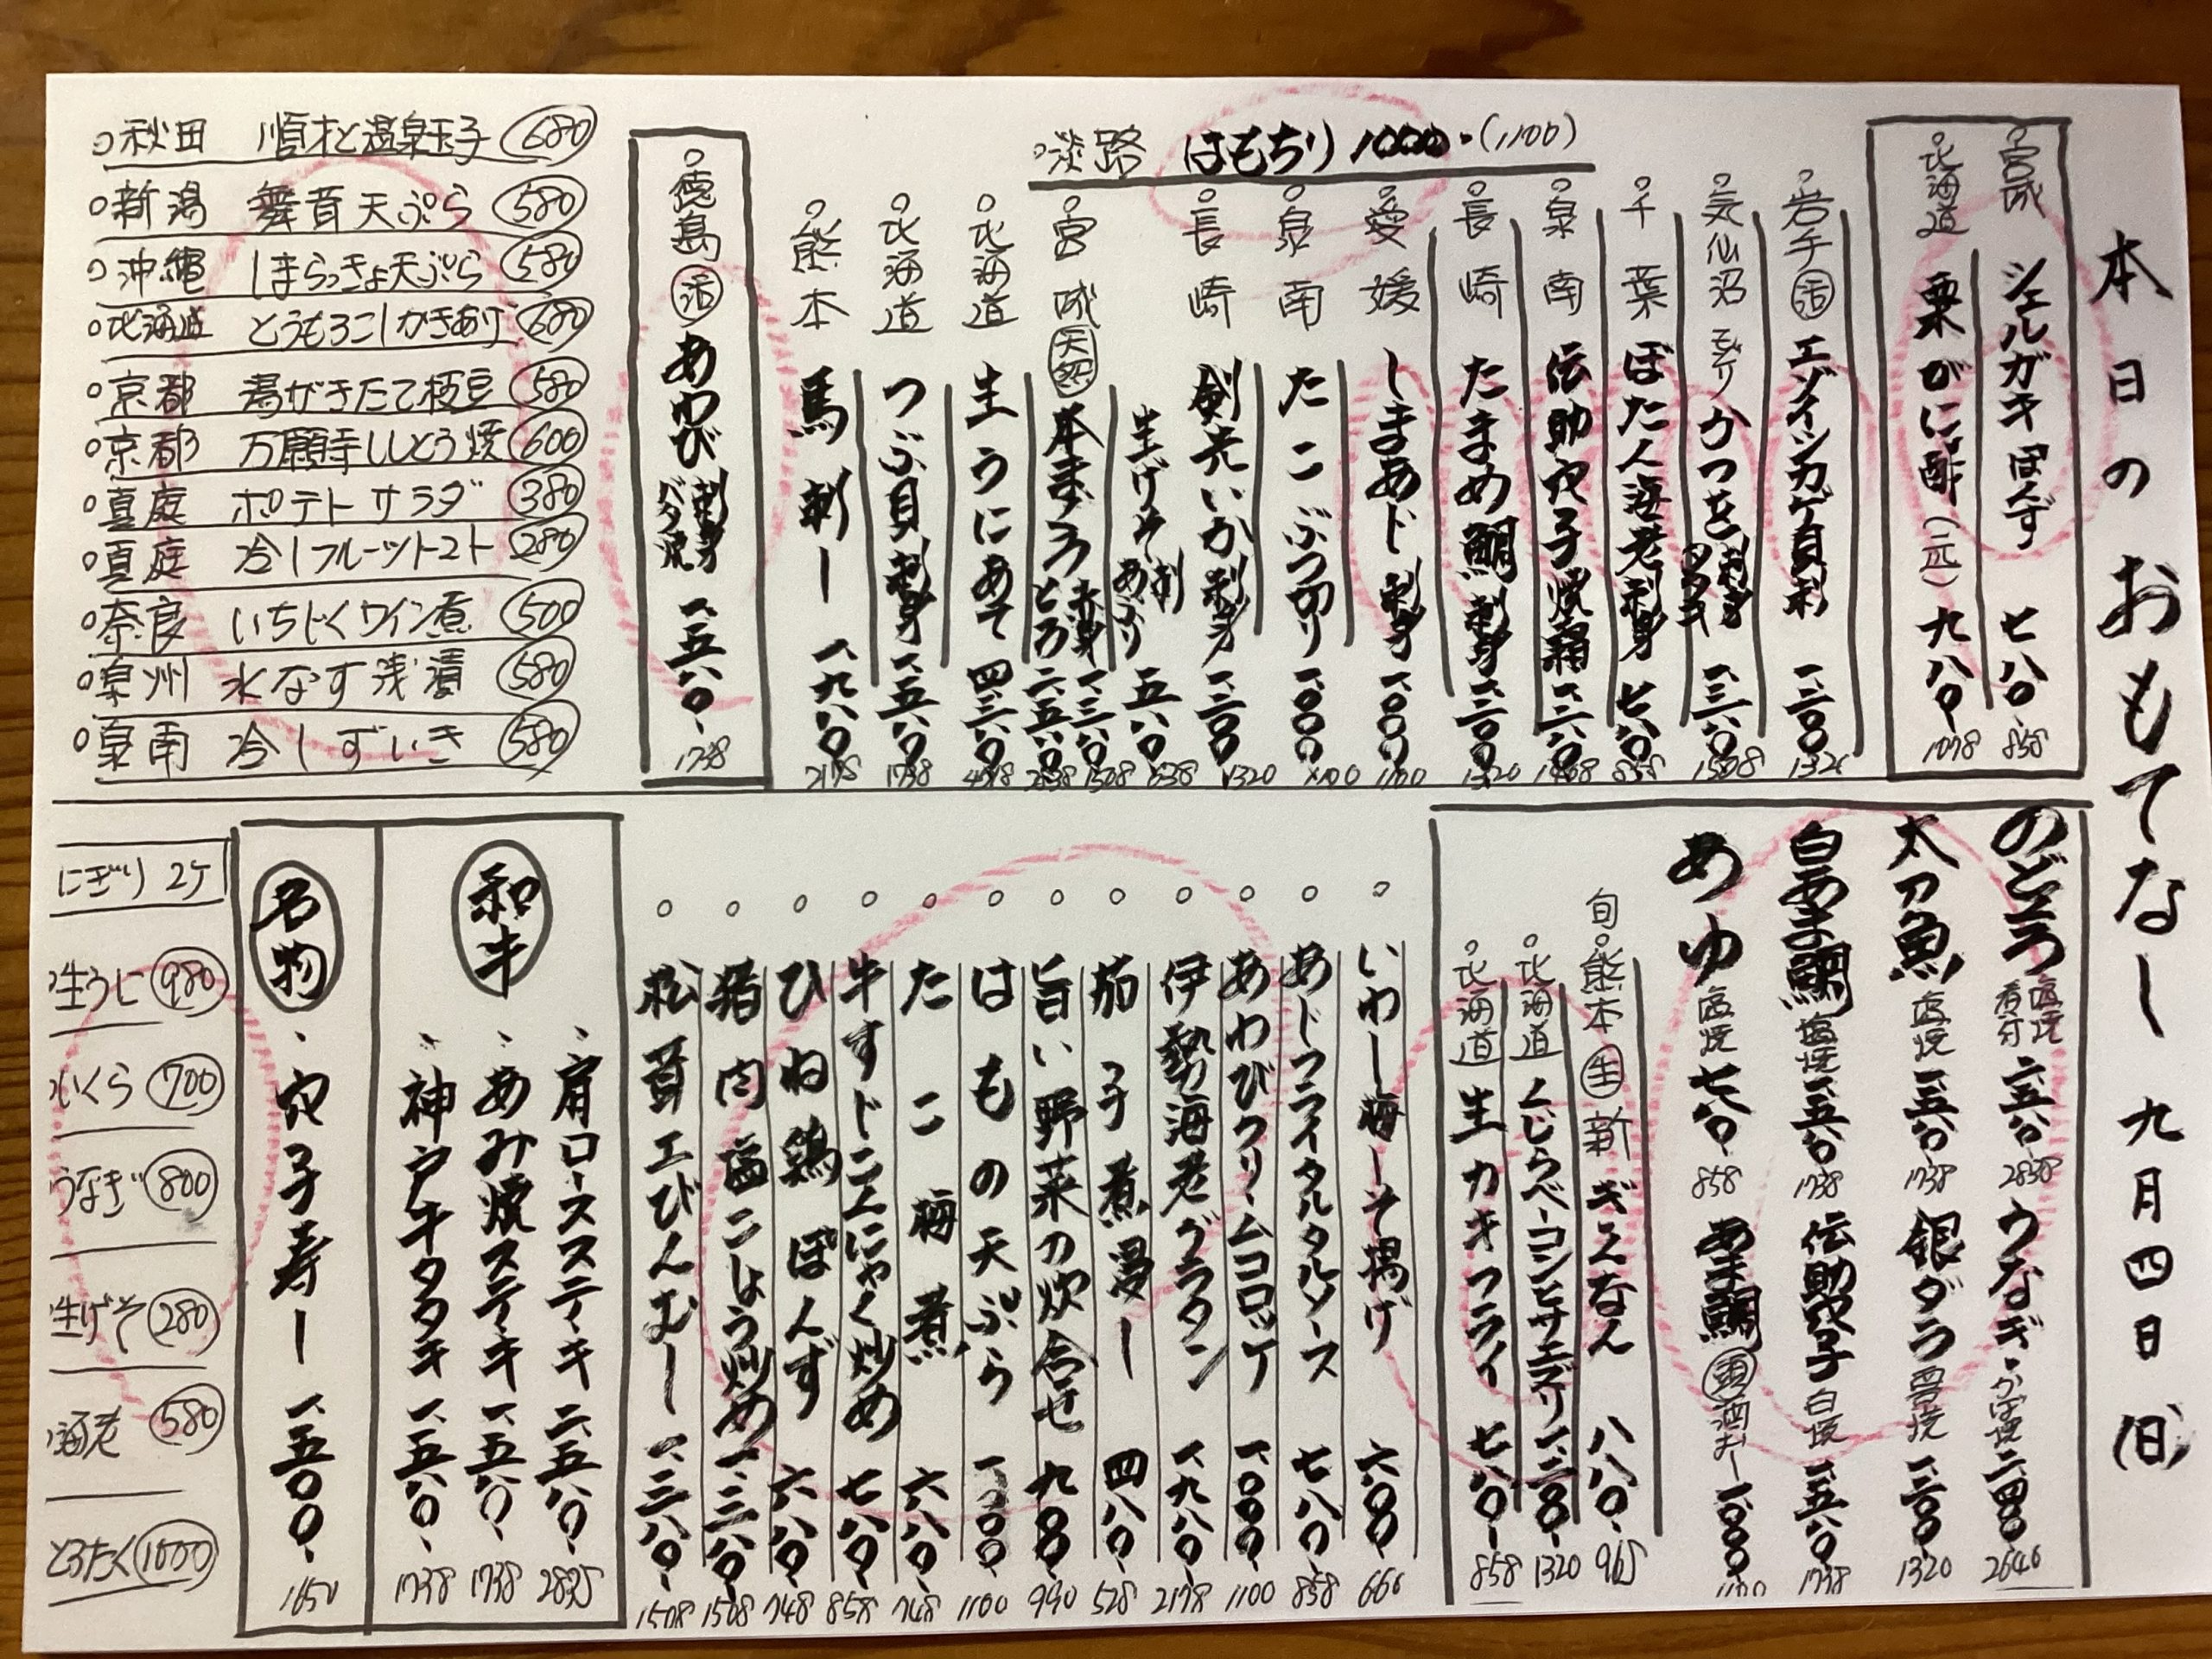 本日のおもてなし 九月四日(日)
宮城 シェルガキぽんず 七八〇 858
北海道 栗がに酢(一匹) 九八〇 1078
淡路 はもちり 1000-(1100)
岩手 活 エゾイシカゲ貝刺 一、二〇〇 1320
気仙沼 モドリかつを 刺身 タタキ 一、三八〇 1508
千葉 ぼたん海老刺身 七八〇 858
泉南 伝助穴子焼霜 一、二八〇
長崎 たまめ鯛刺身 一、二〇〇 1320
愛媛 しまあじ刺身 一、〇〇〇 1100
泉南 たこぶつ切り 一、〇〇〇 1100
長崎 剣先いか刺身 一、二〇〇 1320
生げそ 刺 あぶり 五八〇 638
宮城 天然 本まぐろ 赤身 一、三八〇 1508 とろ 二、五八〇 2838
北海道 生うにあて 四、三八〇
北海道 つぶ貝刺身 一、五八〇 1738
熊本 馬刺し 一、九八〇 2178
徳島 活 あわび 刺身 バタ焼 一、五八〇- 1738
秋田 順才と温泉玉子 680
新潟 舞茸天ぷら 580
沖縄 しまらっきょ天ぷら 580
北海道 とうもろこしかきあげ 680
京都 湯がきたて枝豆 580
京都 万願寺ししとう焼 600
真庭 ポテトサラダ 380
真庭 冷しフルーツトマト 280
奈良 いちじくワイン煮 500
泉州 水なす浅漬 580
泉南 冷しずいき 580
のどぐろ 塩焼 煮付 二、五八〇- 2838
うなぎ・かば焼 二、四〇〇 2640
太刀魚 塩焼 一、五八〇- 1738
銀ダラ 西京焼 一、二〇〇 1320
白あま鯛 塩焼 一、五八〇- 1738
伝助穴子 白焼 一、五八〇 1738
あゆ 塩焼 七八〇- 858
あま鯛 頭 酒むし 一、〇〇〇 1100
旬 熊本 生 新ぎんなん 八八〇-
北海道 くじらベーコンとサエズリ 1320
北海道 生カキフライ 七八〇- 858
いわし梅しそ揚げ 六〇〇- 660
あじフライタルタルソース 七八〇 858
あわびクリームコロッケ 一、〇〇〇 1100
伊勢海老グラタン 一、九八〇 2178
茄子煮浸し 四八〇- 528
旨い野菜の炊合せ 九〇〇 990
はもの天ぷら 一、〇〇〇 1100
たこ梅煮 六八〇- 748
牛すじこんにゃく炒め 七八〇- 858
ひね鶏ぽんず 六八〇- 748
猪肉塩こしょう炒め 一、三八〇 1508
松茸エびんむし 一、三八〇 1508
和牛
、肩ロースステーキ 二、五八〇-
、あみ焼ステーキ 一、五八〇- 1738
、神戸牛タタキ 一、五八〇- 1738
名物
、穴子寿し 一、五〇〇- 1650
にぎり 2ケ
生うに 980
いくら 700
うなぎ 800
生げそ 280
海老 580
とろたく 1000